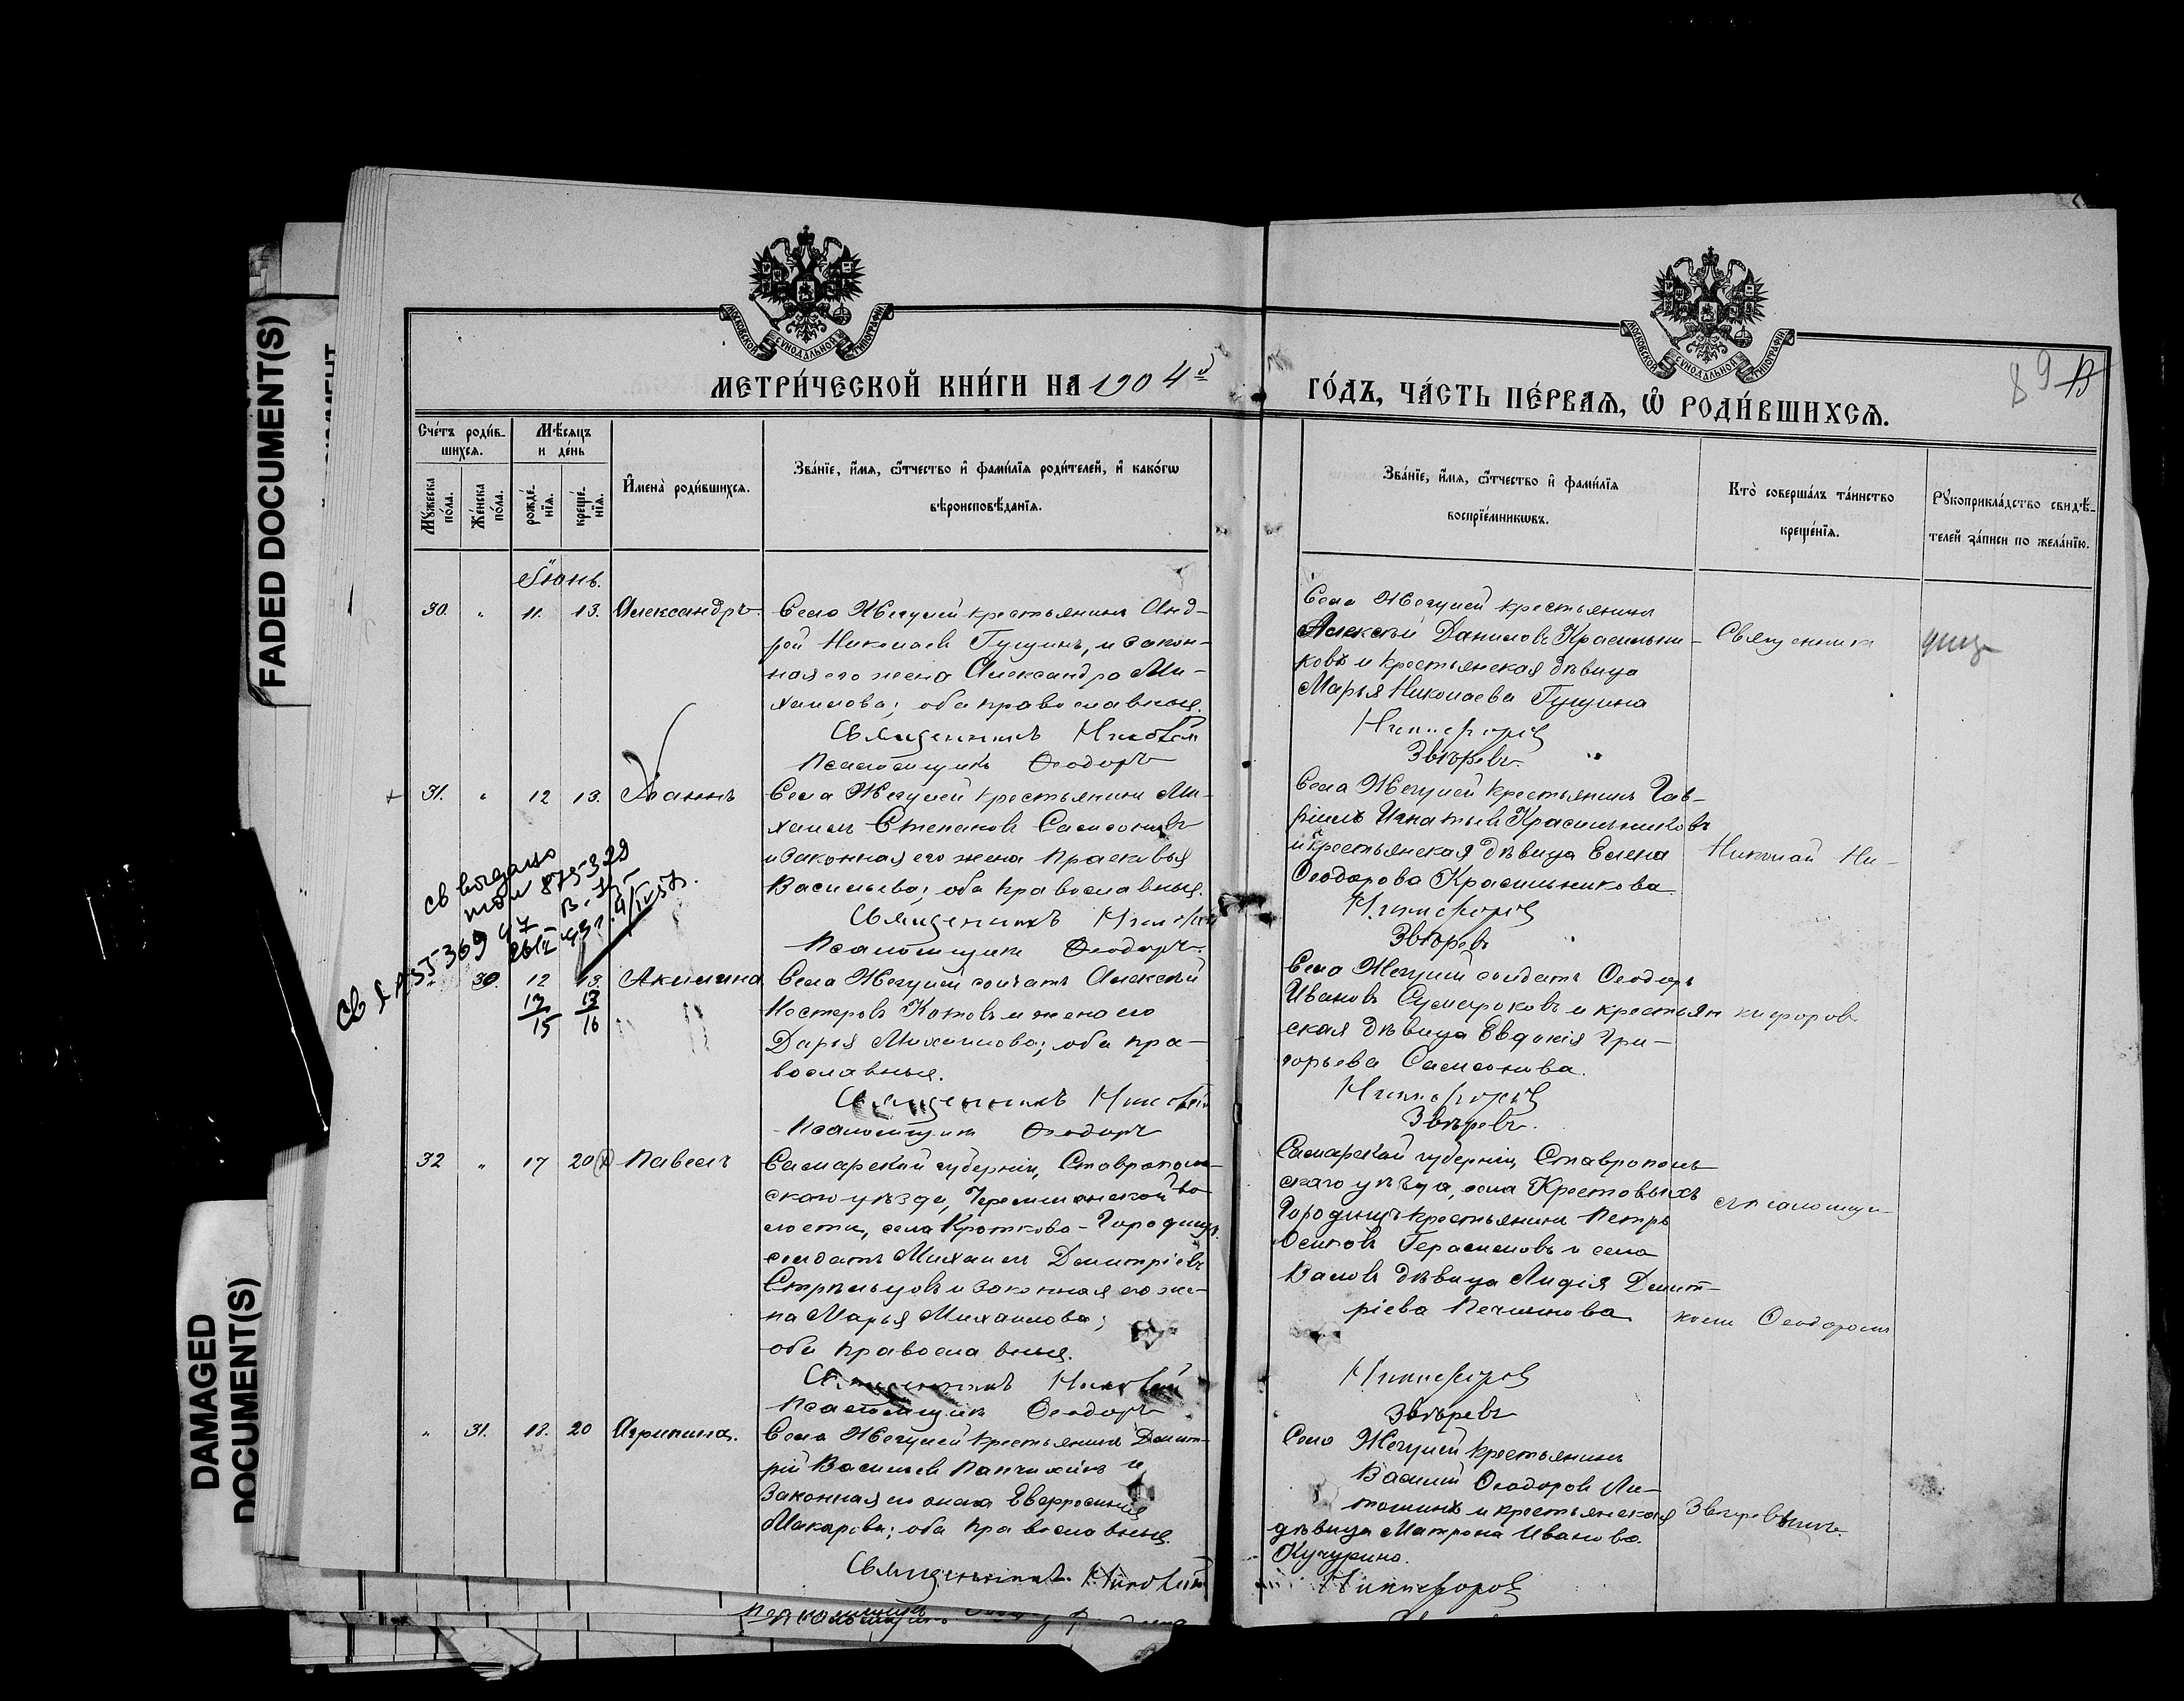 FADED DOCUMENT(S)
DAMAGED
DOCUMENT(S)
МОСКОВСКОЙ СѴНОДАЛЬНОЙ ТИПОГРАФІИ
МОСКОВСКОЙ СѴНОДАЛЬНОЙ ТИПОГРАФІИ
МЕТРИ́ЧЕСКОЙ КНИ́ГИ НА 1904й
ГО́ДЪ, ЧА́СТЬ ПЕ́РВАѦ, Ѽ РОДИ́ВШИХСѦ.
89
Сче́тъ роди́в-
шихсѧ.
Мꙋ́жеска по́ла.
Же́нска по́ла.
Мѣ́сѧцъ и де́нь
рожде́-нїѧ.
креще́-нїѧ.
И҆мена̀ роди́вшихсѧ.
Зва́нїе, и҆́мѧ, ѻ҆́тчество и҆ фами́лїѧ роди́телей, и҆ како́гѡ
вѣроисповѣ́данїѧ.
Зва́нїе, и҆́мѧ, ѻ҆́тчество и҆ фами́лїѧ
воспрїе́мникѡвъ.
Кто̀ соверша́лъ та́инство
креще́нїѧ.
Рꙋкоприкла́дство свидѣ́-
телей за́писи по жела́нїю.
Іюнь.
30. " 11. 13. Александръ.
Села Жегулей крестьянинъ Анд-
рей Николаевъ Гущинъ, и закон-
ная его жена Александра Ми-
хаилова; оба православные.
Священникъ Николай
Псаломщикъ Ѳеодоръ
Села Жегулей крестьянинъ
Алексѣй Даниловъ Красильни-
ковъ и крестьянская дѣвица
Марья Николаева Гущина
Никифоровъ
Звѣревъ.
Священникъ
31. " 12 13. Іоаннъ
Села Жегулей крестьянинъ Ми-
хаилъ Степановъ Самсоновъ
и законная его жена Прасковья
Васильева; оба православные.
Священникъ Николай
Псаломщикъ Ѳеодоръ.
Села Жегулей крестьянинъ Гав-
ріилъ Игнатьевъ Красильниковъ
и крестьянская дѣвица Елена
Ѳеодорова Красильникова.
Никифоровъ
Звѣревъ
Николай Ни-
св выдано
" 30. 12 13. Акилина
13/15 13/16
Села Жегулей солдатъ Алексѣй
Несторовъ Котовъ и жена его
Дарья Михаилова; оба пра-
вославные.
Священникъ Николай
Псаломщикъ Ѳеодоръ
Села Жегулей солдатъ Ѳеодоръ
Ивановъ Сумароковъ и крестьян
ская дѣвица Евдокія Гри-
горьева Самсонова.
Никифоровъ
Звѣревъ.
кифоровъ
32 " 17 20 Павелъ
Самарской губерніи, Ставрополь-
скаго уѣзда, Черемшанской во
лости, села Кротково-Городищъ
солдатъ Михаилъ Димитріевъ
Стрѣльцовъ и законная его же-
на Марья Михаилова;
оба православные.
Священникъ Николай
Псаломщикъ Ѳеодоръ
Самарской губерніи, Ставрополь
скаго уѣзда, села Крестовыхъ
Городищъ крестьянинъ Петръ
Осиповъ Герасимовъ и села
Валовъ дѣвица Лидія Димит-
ріева
Никифоровъ
Звѣревъ
съ псаломщи-
комъ Ѳеодоромъ
" 31. 18. 20 Агрипина.
Села Жегулей крестьянинъ Димит-
рій Васильевъ Папчихинъ и
законная его жена Евфросинія
Макарова; оба православные.
Священникъ Николай
Села Жегулей крестьянинъ
Василій Ѳеодоровъ
и крестьянская
дѣвица Матрона Иванова
Кучурина.
Никифоровъ
Звѣревымъ.